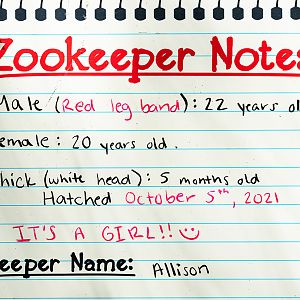 Zookeeper Notes
Male (Red leg band): 22 years ol
emale: 20 years old.
hick (white head): 5 months old
Hatched October 5th, 2021
IT'S A GIRL!!
eeper Name: Allison